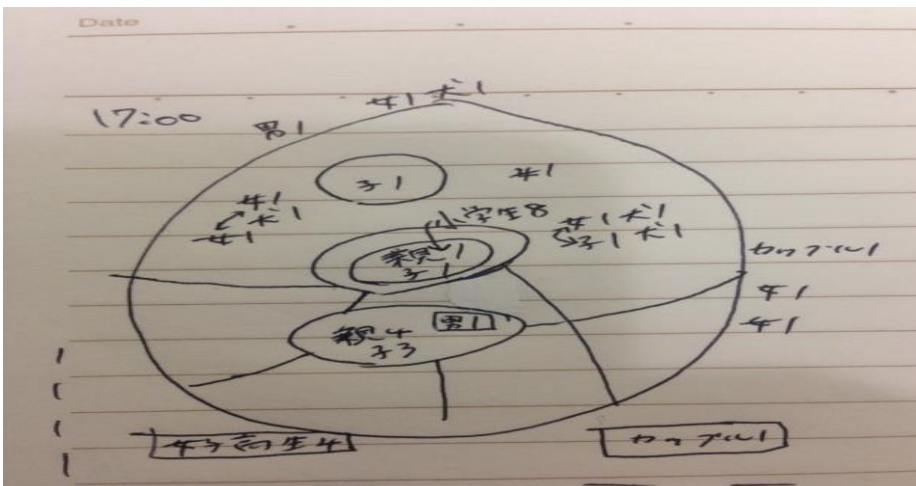 Date
女1 犬1
17:00
男1
子1
女1
女1
犬1
女1
小学生8
女1 犬1
子1 犬1
親1
子1
カップル1
女1
女1
親4 男1
子3
女子高生4
カップル1